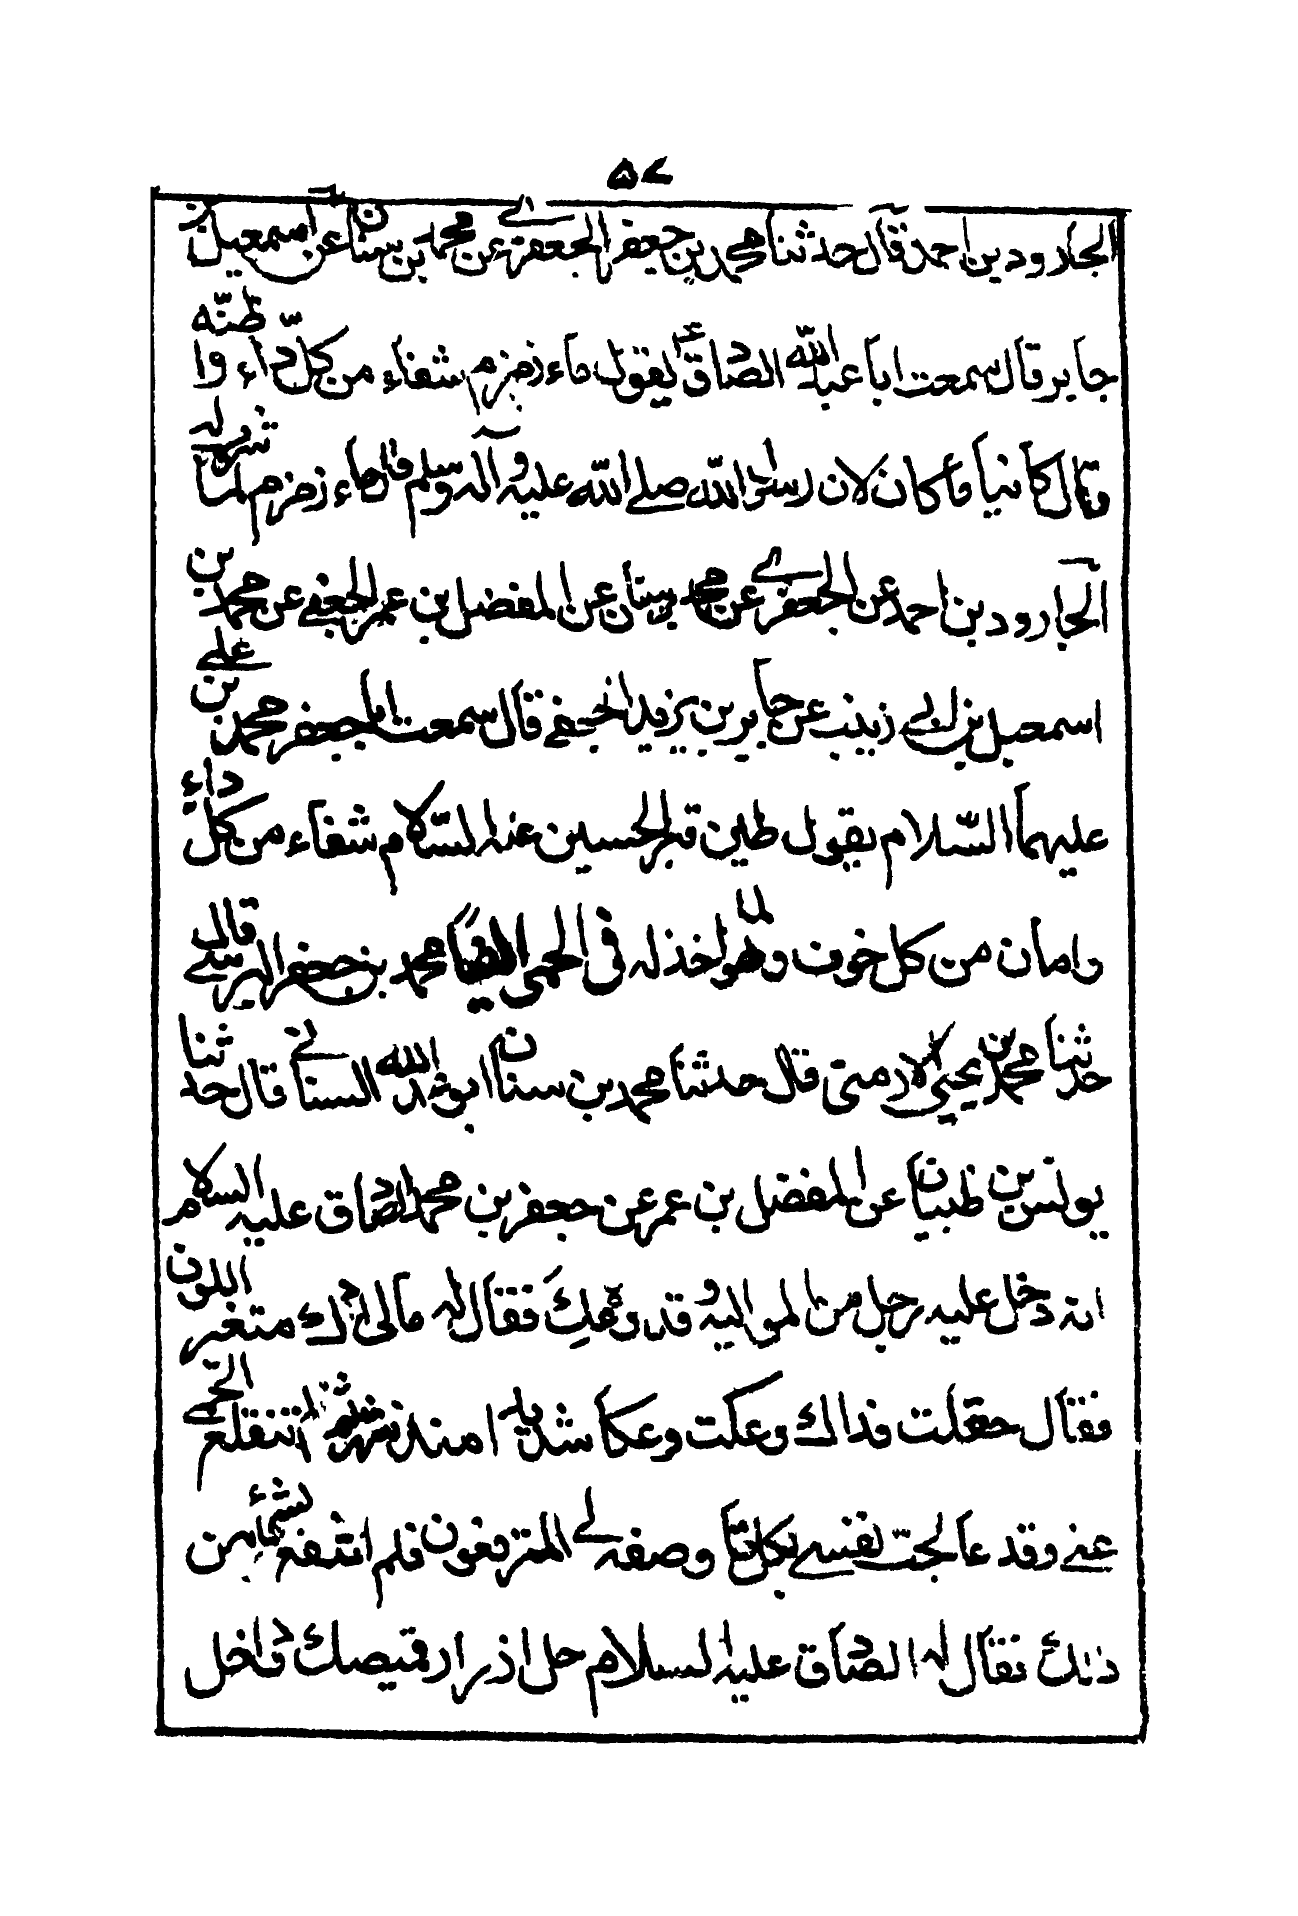 ۵۷
الجارود بن احمد قال حدثنا محمد بن جعفر الجعفرى عن محمد بن سنان عن اسمعيل بن
جابر قال سمعت ابا عبد الله الصادق يقول ماء زمزم شفاء من كل داء واظنه
وقال كائنا ما كان لان رسول الله صلى الله عليه وآله وسلم قال ماء زمزم لما شرب له
الجارود بن احمد عن الجعفرى عن محمد بن سنان عن المفضل بن عمر الجعفى عن محمد بن
اسمعيل بن ابى زينب عن جابر بن يزيد الجعفى قال سمعت ابا جعفر محمد بن على
عليهما السلام يقول طين قبر الحسين عليه السلام شفاء من كل داء
وامان من كل خوف وهو لما اخذ له فى الحمى ايضا محمد بن جعفر البرسى قال
حدثنا محمد بن يحيى الارمنى قال حدثنا محمد بن سنان ابو عبد الله السنانى قال حدثنا
يونس بن ظبيان عن المفضل بن عمر عن جعفر بن محمد الصادق عليه السلام
انه دخل عليه رجل من مواليه وقد وعك فقال له مالى اراك متغير اللون
فقال جعلت فداك وعكت وعكا شديدا منذ شهر ثم لم تنقلع الحمى
عنى وقد عالجت نفسى بكل ما وصفه لى المترفعون فلم انتفع بشئ من
ذلك فقال له الصادق عليه السلام حل ازرار قميصك وادخل